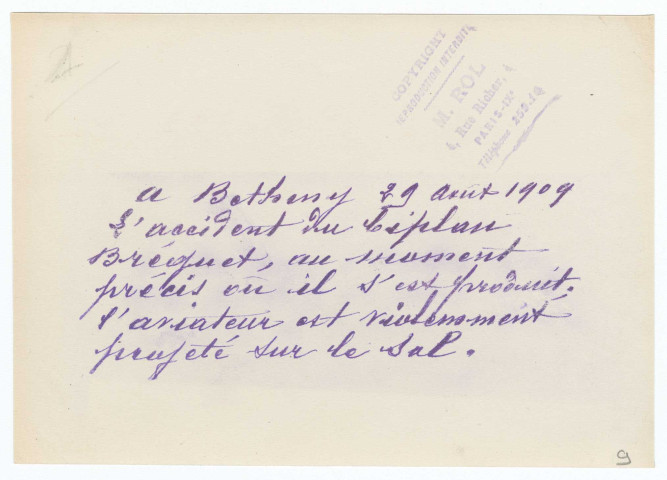 COPYRIGHT
REPRODUCTION INTERDITE
M. ROL
4, Rue Richer, 4
PARIS-IXe
Téléphone 259.19
a Betheny 29 Août 1909
L'accident du biplan
Bréguet, au moment
précis où il s'est produit.
l'aviateur est violemment
projeté sur le sol.
9